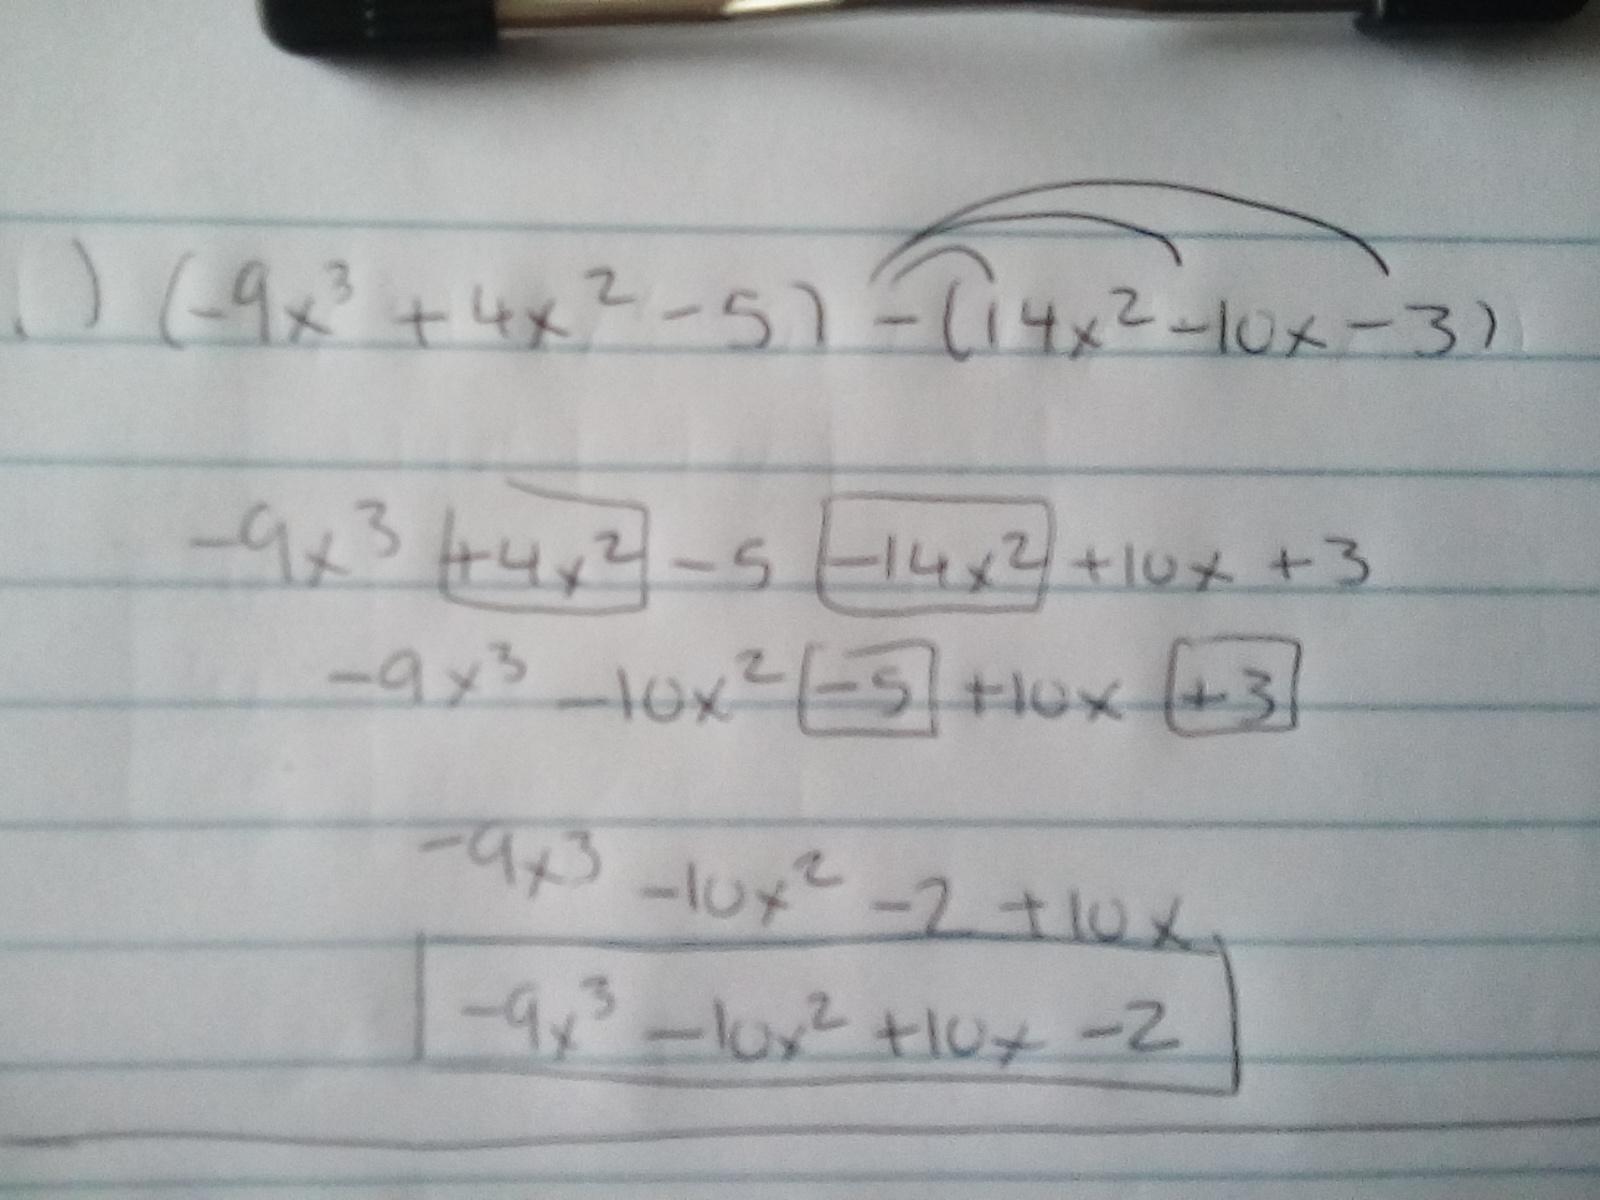 .) (-9x³ + 4x² - 5) - (14x² - 10x - 3)
-9x³ +4x² - 5 -14x² +10x + 3
-9x³ -10x² -5 +10x +3
-9x³ -10x² -2 +10x
-9x³ -10x² +10x -2